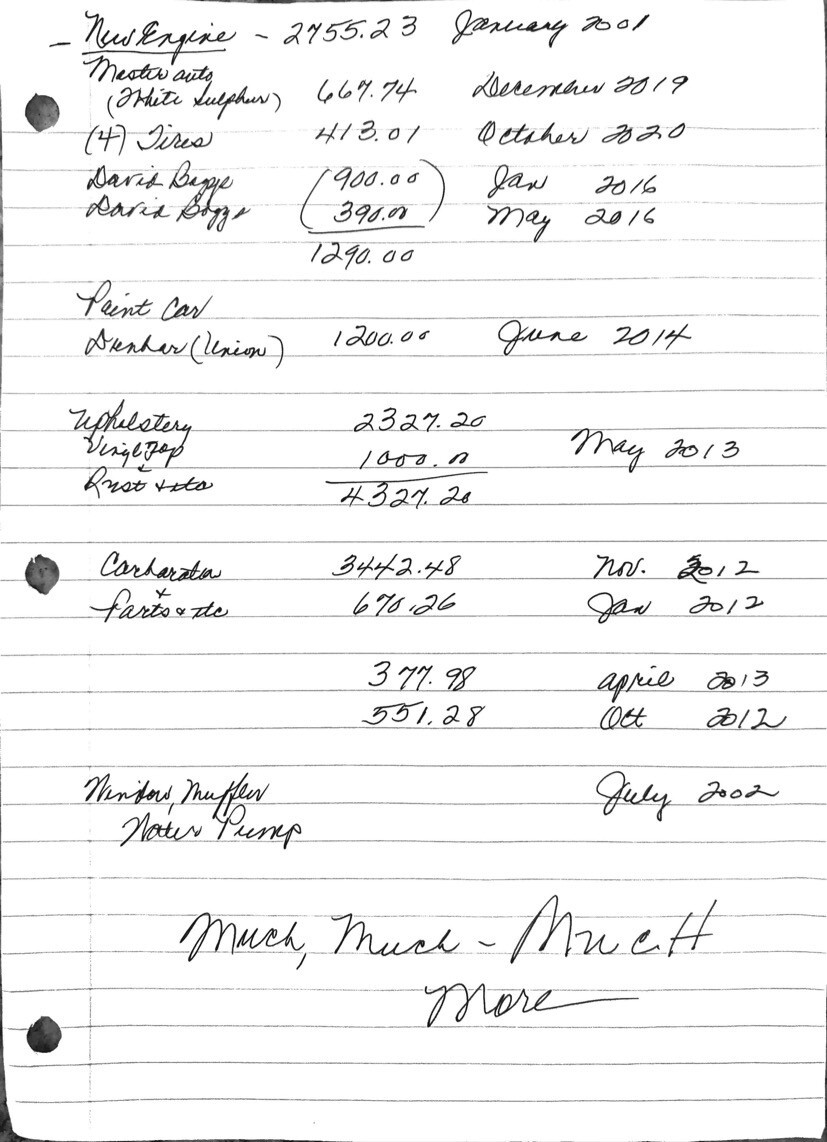 – New Engine – 2755.23 January 2001
Master auto
(White Sulphur) 667.74 December 2019
(4) Tires 413.01 October 2020
David Boggs (900.00) Jan 2016
David Boggs (390.00) May 2016
1290.00
Paint Car
Dunbar (Union) 1200.00 June 2014
Upholstery 2327.20
Vinyl Top 1000.00 May 2013
+
Rust & etc 4327.20
Carbarator 3442.48 Nov. 2012
+
Parts & etc 670.26 Jan 2012
377.98 april 2013
551.28 Oct 2012
Window, Muffler July 2002
Water Pump
Much, Much – MucH
More